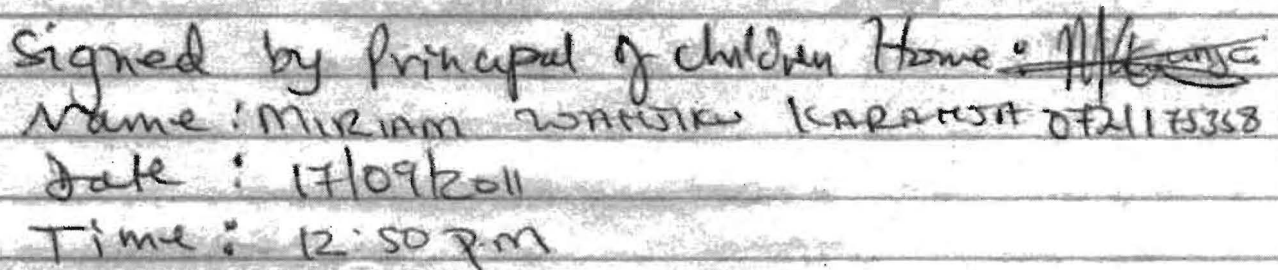 Signed by Principal of children Home:
Name: MIRIAM WANJIKU KARANJA 0721175358
Date: 17/09/2011
Time: 12.50 p.m